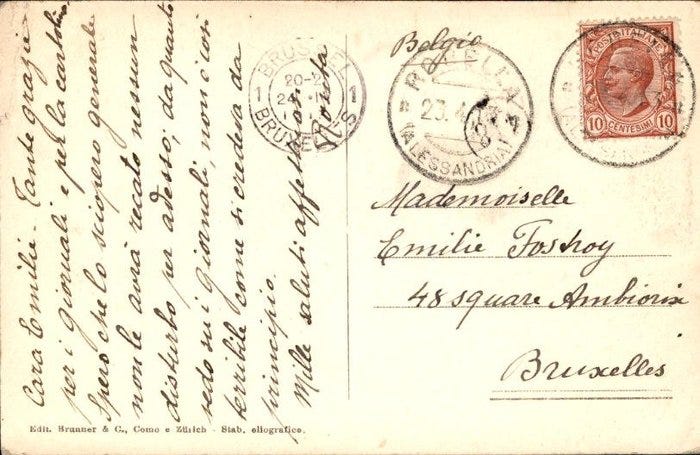 Cara Emilie - Tante grazie
per i giornali e per la cartolina
Spero che lo sciopero generale
non le avrà recato nessun
disturbo per adesso; da quanto
vedo sui giornali, non è così
terribile come si credeva da
principio.
Mille saluti affettuosi
BRUSSEL
20-2
24 IV
1 1
BRUXELLES
Belgio
ROVELLA
23.4
(ALESSANDRIA)
POSTE ITALIANE
10 CENTESIMI 10
Mademoiselle
Emilie Fostroy
48 square Ambiorix
Bruxelles
Edit. Brunner & C., Como e Zürich - Stab. eliografico.